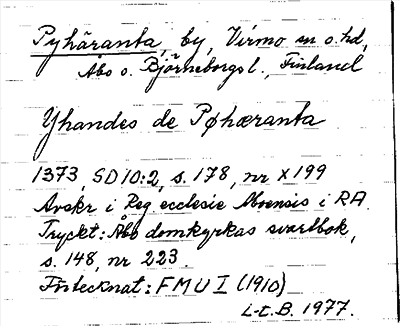 Pyhäranta, by, Virmo sn o. hd,
Åbo o. Björneborgs l., Finland
Yhandes de Pøhæranta
1373, SD 10:2, s. 178, nr X 199
Avskr i Reg ecclesie Aboensis i RA.
Tryckt: Åbo domkyrkas svartbok,
s. 148, nr 223.
Förtecknat: FMU I (1910)
L-E. B. 1977.